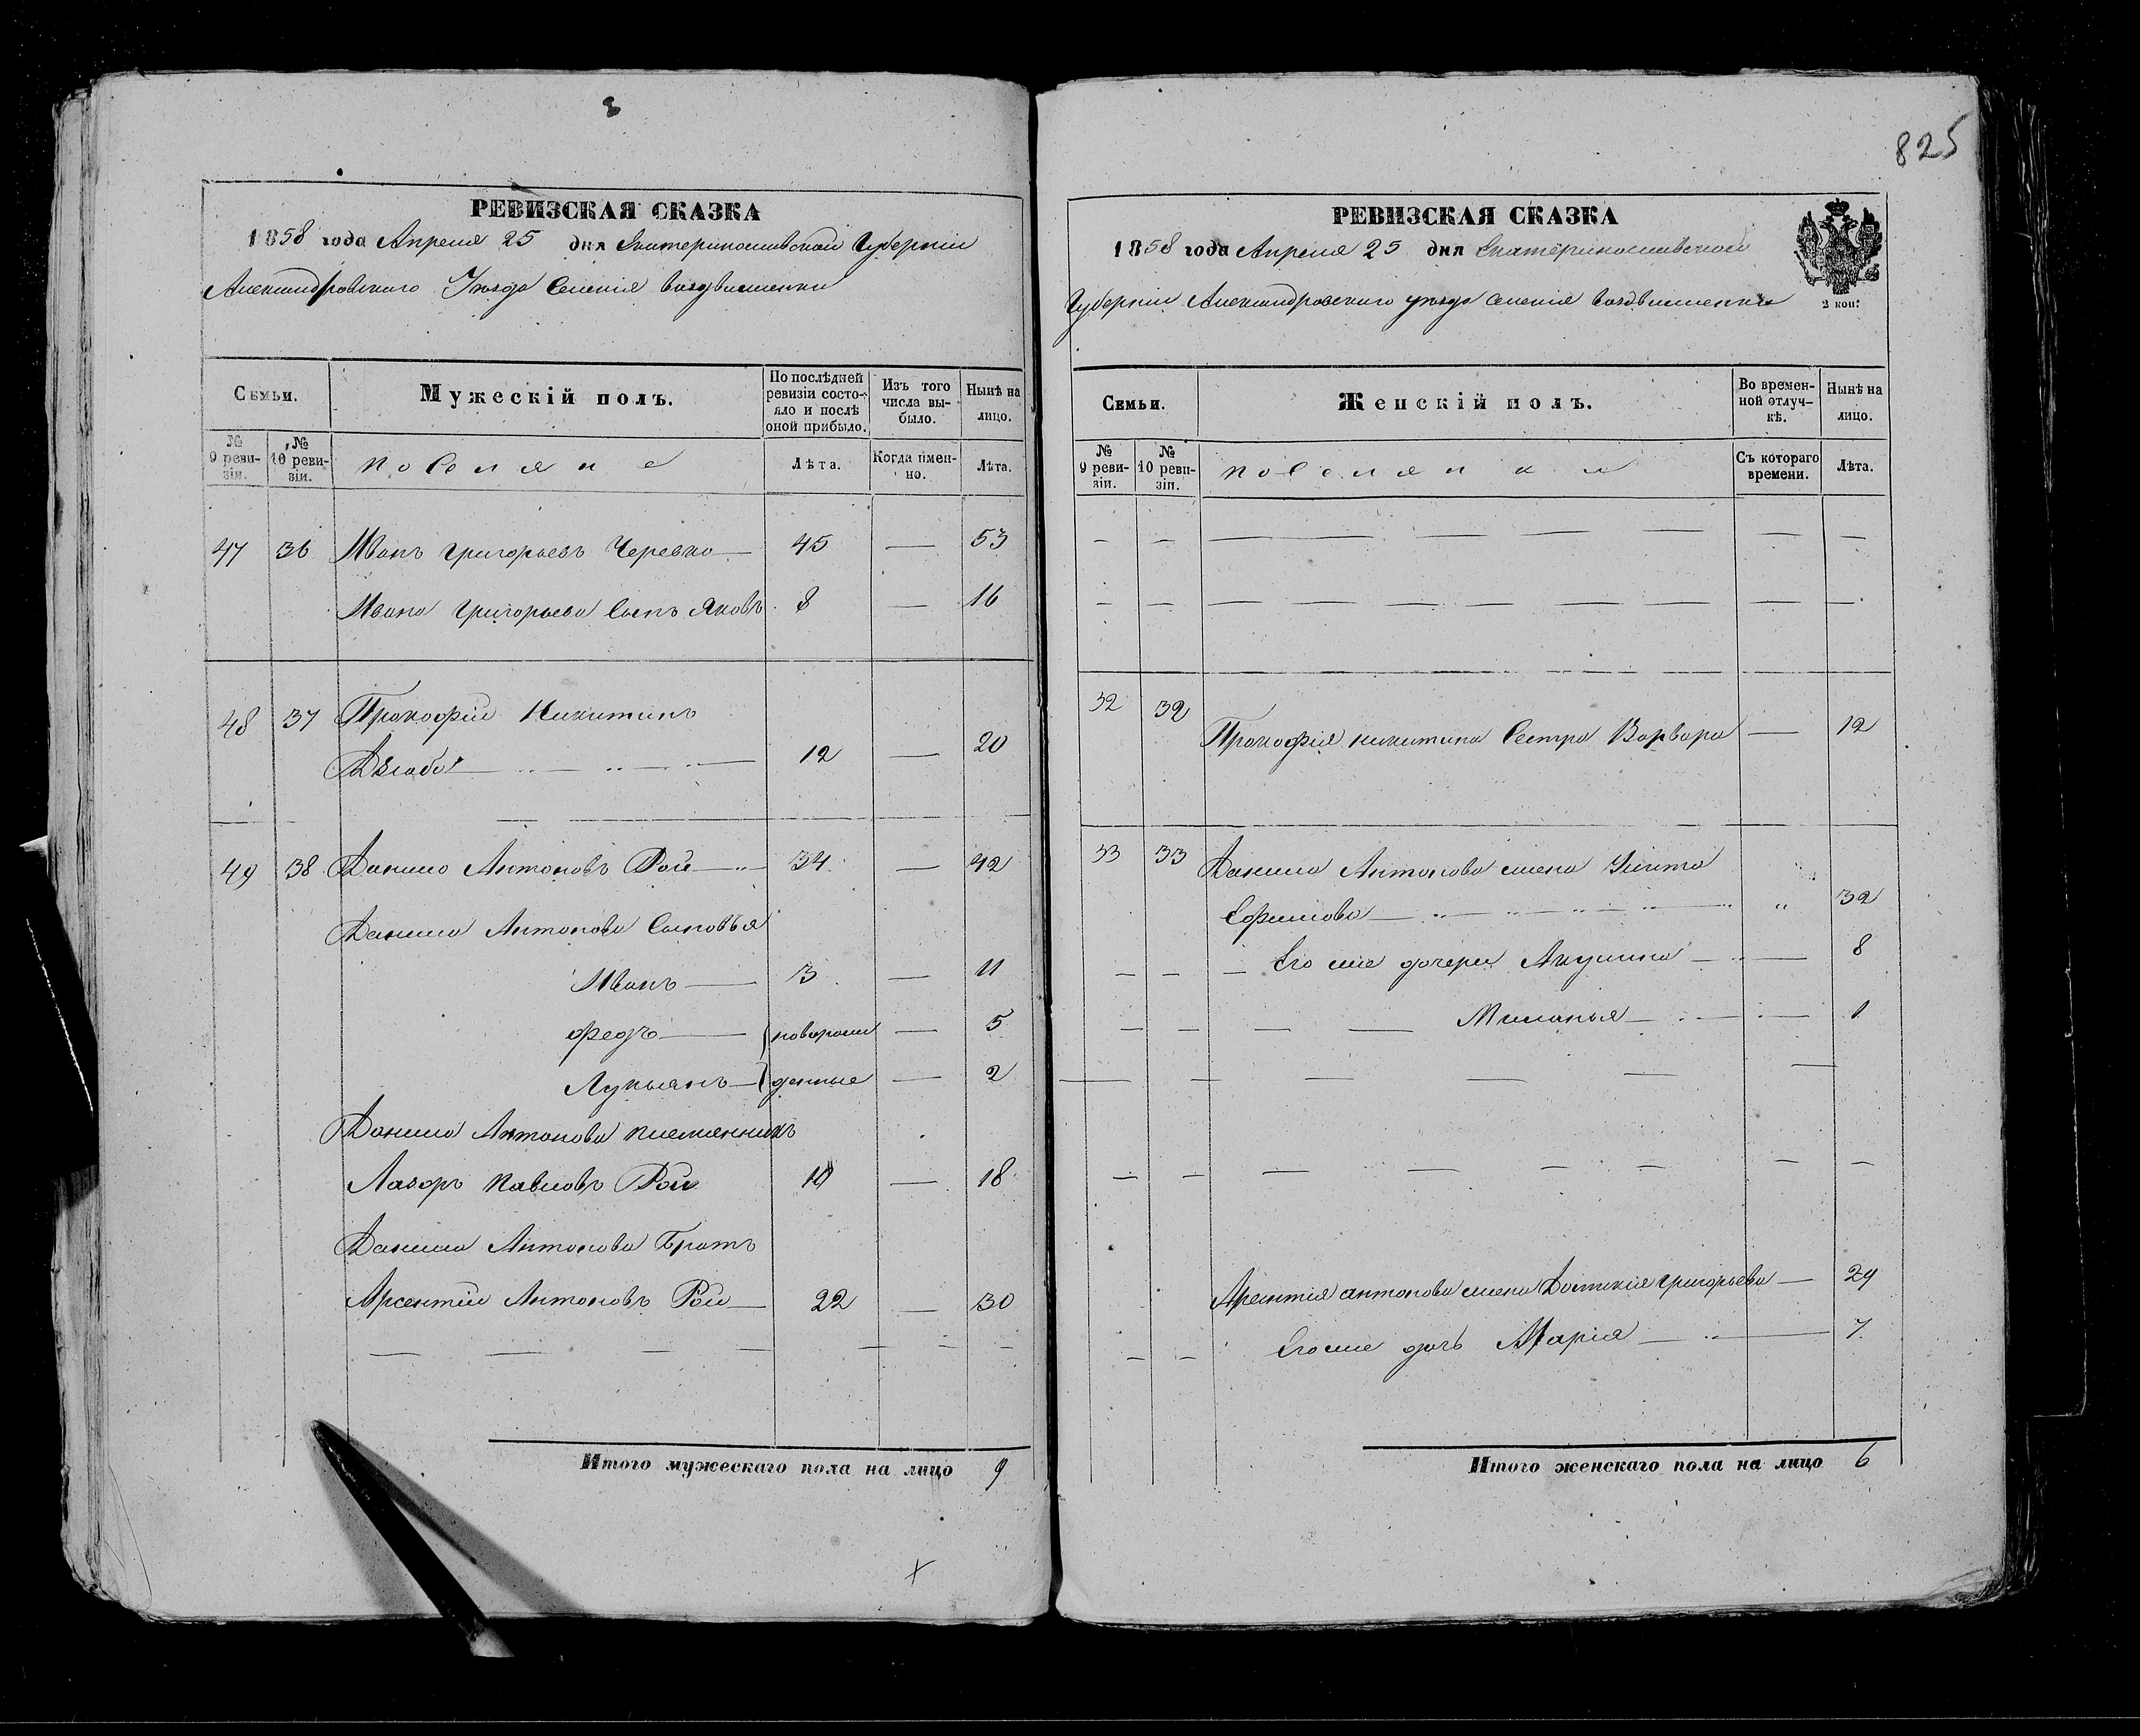 8
РЕВИЗСКАЯ СКАЗКА
1858 года Апреля 25 дня Екатеринославской Губерніи
Александровскаго Уѣзда Селенія Воздвиженки
Семьи.
Мужескій полъ.
По послѣдней ревизіи состояло и послѣ оной прибыло.
Изъ того числа выбыло.
Нынѣ на лицо.
№ 9 ревизіи.
№ 10 ревизіи.
Поселяне
Лѣта.
Когда имен-но.
Лѣта.
47 36 Иванъ Григорьевъ Черевко — 45 — 53
Ивана Григорьева Сынъ Яковъ 8 — 16
48 37 Прокофій Никитинъ
12 — 20
49 38 Данило Антоновъ Рой — 34 — 42
Данила Антонова Сыновья
Иванъ — 3 — 11
Федръ — новорож — 5
Лукьянъ — денные — 2
Данила Антонова племянникъ
Лазоръ Павловъ Рой 10 — 18
Данила Антонова Братъ
Арсентій Антоновъ Рой — 22 — 30
Итого мужескаго пола на лицо 9
825
РЕВИЗСКАЯ СКАЗКА
1858 года Апреля 25 дня Екатеринославской
Губерніи Александровскаго уѣзда Селенія Воздвиженки
2 коп:
Семьи.
Женскій полъ.
Во времен-ной отлуч-кѣ.
Нынѣ на лицо.
№ 9 реви-зіи.
№ 10 реви-зіи.
Поселянки
Съ котораго времени.
Лѣта.
32 32 Прокофія Никитина Сестра Варвара — 12
33 33 Данила Антонова жена Улита
Ефимова — „ 32
Его же дочери Акулина — 8
Миланья — 1
Арсентія Антонова жена Домникія Григорьева — 29
Его же дочь Марія — 7
Итого женскаго пола на лицо 6